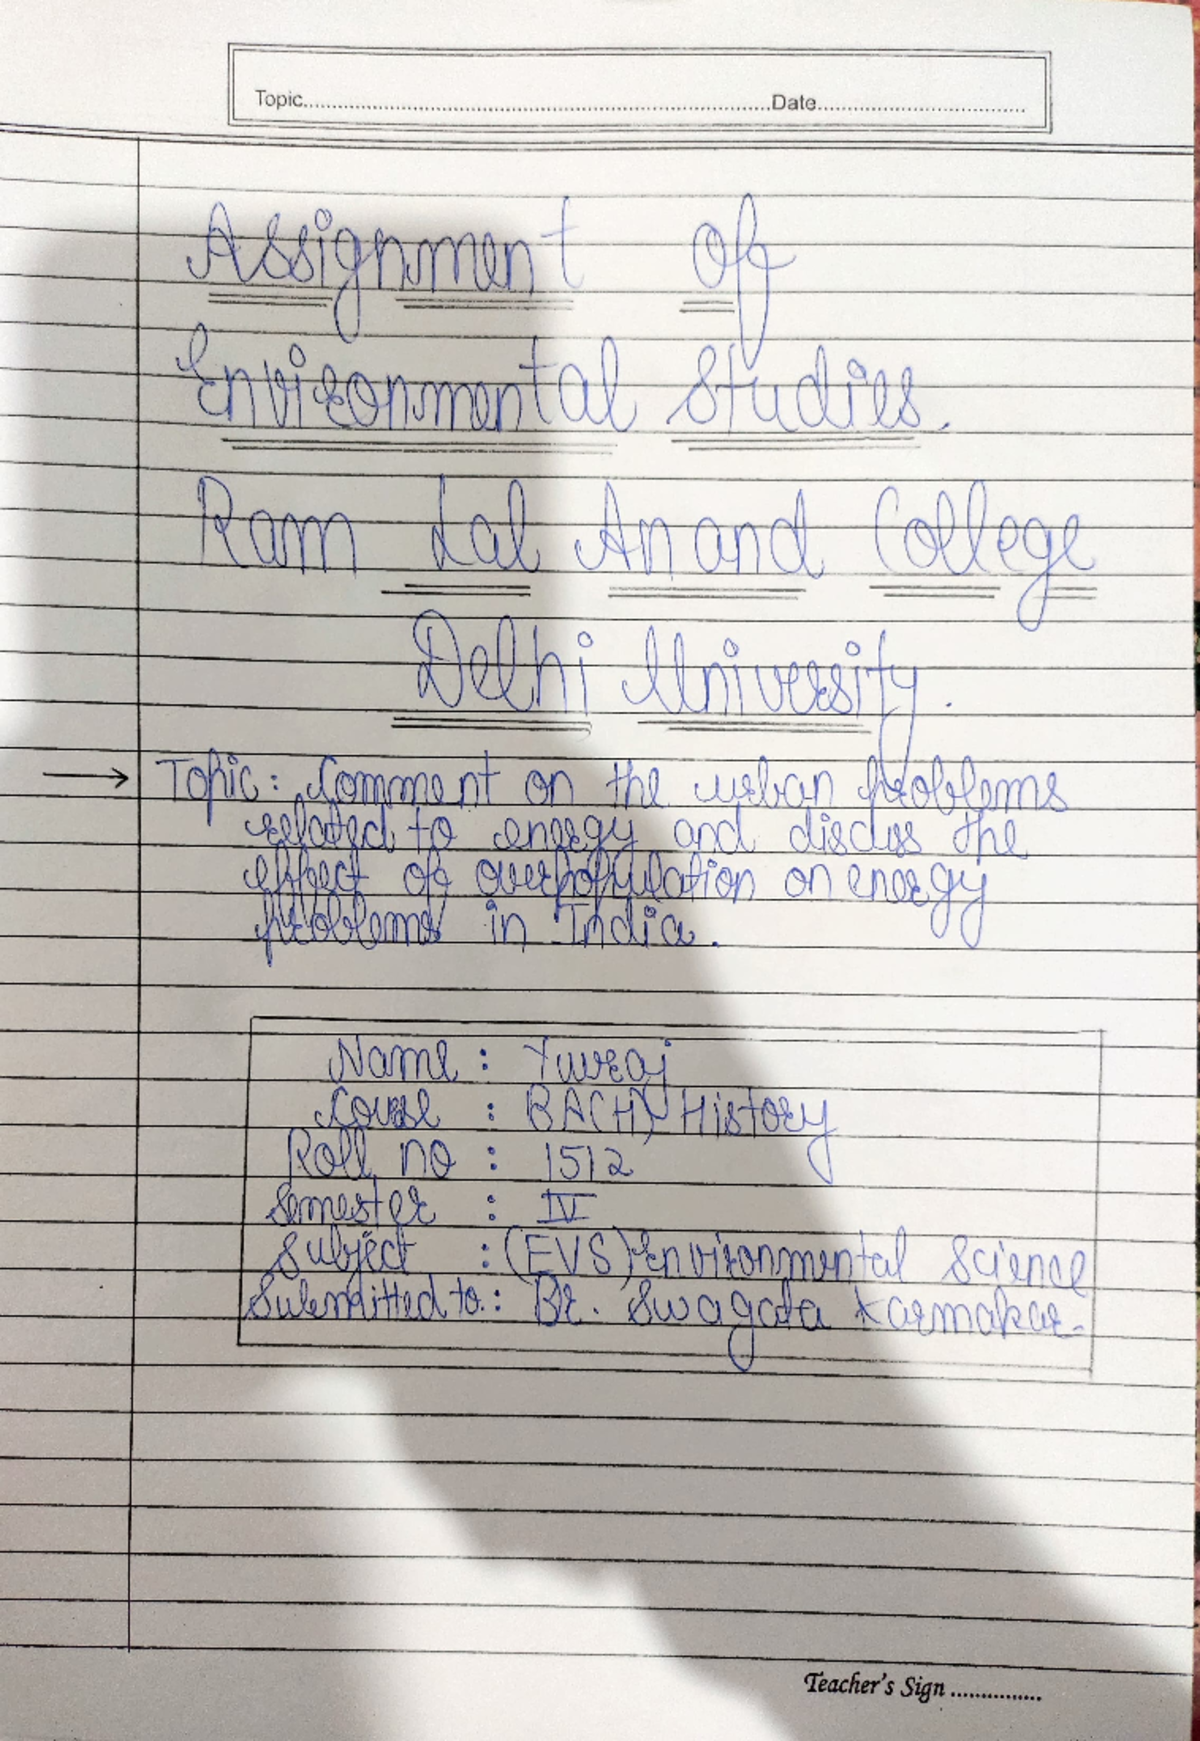 Topic.................... Date....................
Assignment of
Environmental Studies.
Ram Lal Anand College
Delhi University.
→ Topic: Comment on the urban problems
related to energy and discuss the
effect of overpopulation on energy
problems in India.
Name : Yuvraj
Course : BA(H) History
Roll no : 1512
Semester : IV
Subject : (EVS) Environmental Science
Submitted to : Dr. Swagata Karmakar.
Teacher's Sign ...............